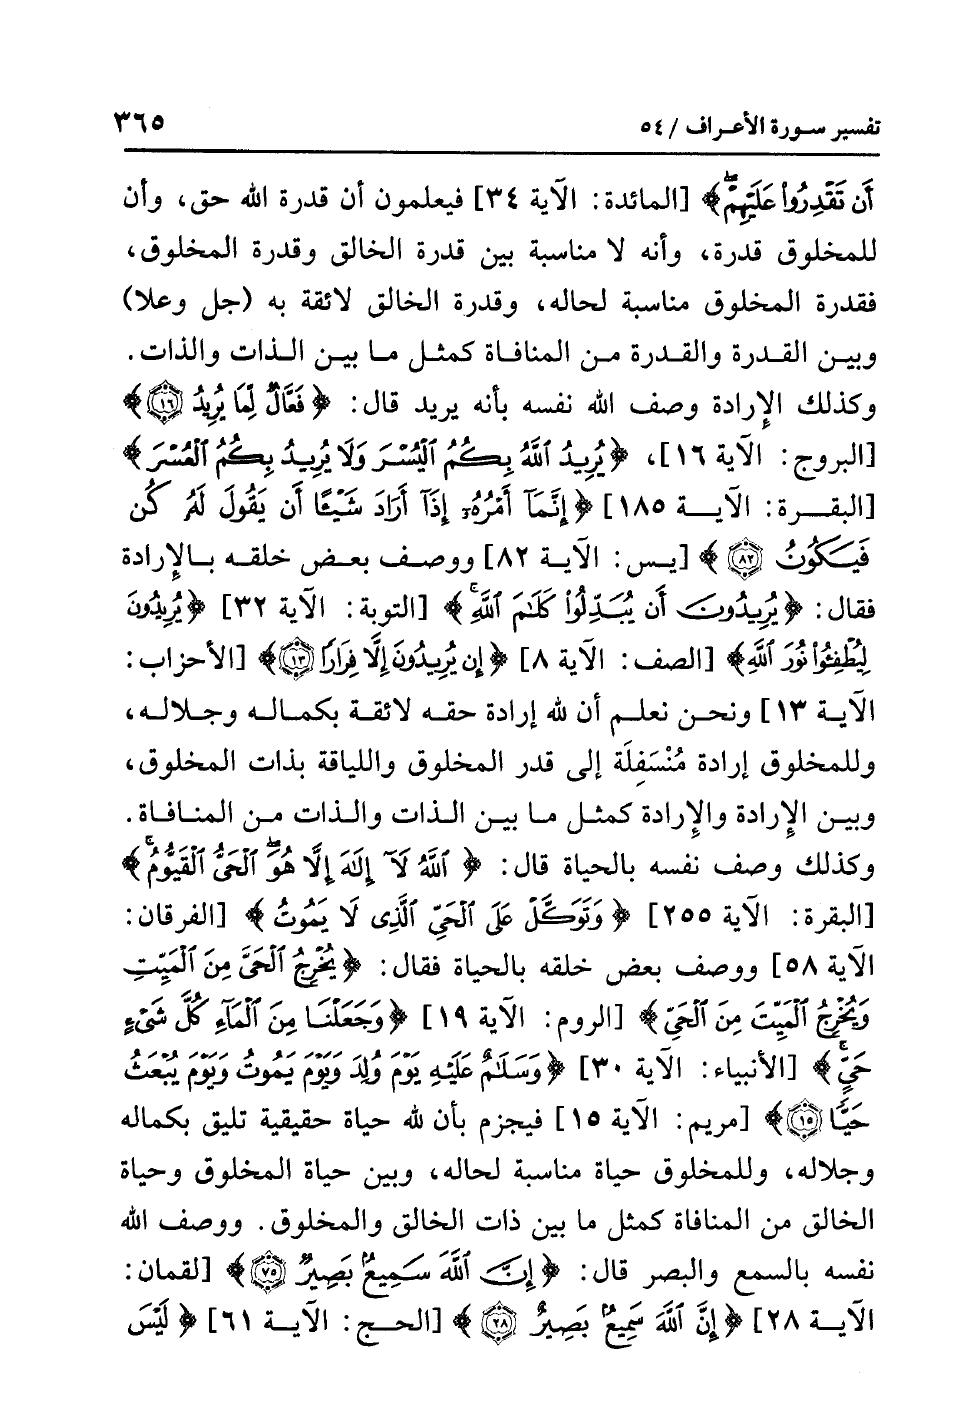 تفسير سورة الأعراف / ٥٤ ٣٦٥
أَن تَقْدِرُواْ عَلَيْهِمْۖ﴾ [المائدة: الآية ٣٤] فيعلمون أن قدرة الله حق، وأن
للمخلوق قدرة، وأنه لا مناسبة بين قدرة الخالق وقدرة المخلوق،
فقدرة المخلوق مناسبة لحاله، وقدرة الخالق لائقة به (جل وعلا)
وبين القدرة والقدرة من المنافاة كمثل ما بين الذات والذات.
وكذلك الإرادة وصف الله نفسه بأنه يريد قال: ﴿فَعَّالٌ لِّمَا يُرِيدُ ١٦﴾
[البروج: الآية ١٦]، ﴿يُرِيدُ ٱللَّهُ بِكُمُ ٱلْيُسْرَ وَلَا يُرِيدُ بِكُمُ ٱلْعُسْرَ﴾
[البقرة: الآية ١٨٥] ﴿إِنَّمَآ أَمْرُهُۥٓ إِذَآ أَرَادَ شَيْـًٔا أَن يَقُولَ لَهُۥ كُن
فَيَكُونُ ٨٢﴾ [يس: الآية ٨٢] ووصف بعض خلقه بالإرادة
فقال: ﴿يُرِيدُونَ أَن يُبَدِّلُواْ كَلَٰمَ ٱللَّهِۚ﴾ [التوبة: الآية ٣٢] ﴿يُرِيدُونَ
لِيُطْفِـُٔواْ نُورَ ٱللَّهِ﴾ [الصف: الآية ٨] ﴿إِن يُرِيدُونَ إِلَّا فِرَارًا ١٣﴾ [الأحزاب:
الآية ١٣] ونحن نعلم أن لله إرادة حقه لائقة بكماله وجلاله،
وللمخلوق إرادة مُنْسَفِلَة إلى قدر المخلوق واللياقة بذات المخلوق،
وبين الإرادة والإرادة كمثل ما بين الذات والذات من المنافاة.
وكذلك وصف نفسه بالحياة قال: ﴿ٱللَّهُ لَآ إِلَٰهَ إِلَّا هُوَۖ ٱلْحَيُّ ٱلْقَيُّومُۚ﴾
[البقرة: الآية ٢٥٥] ﴿وَتَوَكَّلْ عَلَى ٱلْحَيِّ ٱلَّذِى لَا يَمُوتُ﴾ [الفرقان:
الآية ٥٨] ووصف بعض خلقه بالحياة فقال: ﴿يُخْرِجُ ٱلْحَيَّ مِنَ ٱلْمَيِّتِ
وَيُخْرِجُ ٱلْمَيِّتَ مِنَ ٱلْحَيِّ﴾ [الروم: الآية ١٩] ﴿وَجَعَلْنَا مِنَ ٱلْمَآءِ كُلَّ شَىْءٍ
حَيٍّۚ﴾ [الأنبياء: الآية ٣٠] ﴿وَسَلَٰمٌ عَلَيْهِ يَوْمَ وُلِدَ وَيَوْمَ يَمُوتُ وَيَوْمَ يُبْعَثُ
حَيًّا ١٥﴾ [مريم: الآية ١٥] فيجزم بأن لله حياة حقيقية تليق بكماله
وجلاله، وللمخلوق حياة مناسبة لحاله، وبين حياة المخلوق وحياة
الخالق من المنافاة كمثل ما بين ذات الخالق والمخلوق. ووصف الله
نفسه بالسمع والبصر قال: ﴿إِنَّ ٱللَّهَ سَمِيعٌۢ بَصِيرٌ ٧٥﴾ [لقمان:
الآية ٢٨] ﴿إِنَّ ٱللَّهَ سَمِيعٌۢ بَصِيرٌ ٢٨﴾ [الحج: الآية ٦١] ﴿لَيْسَ